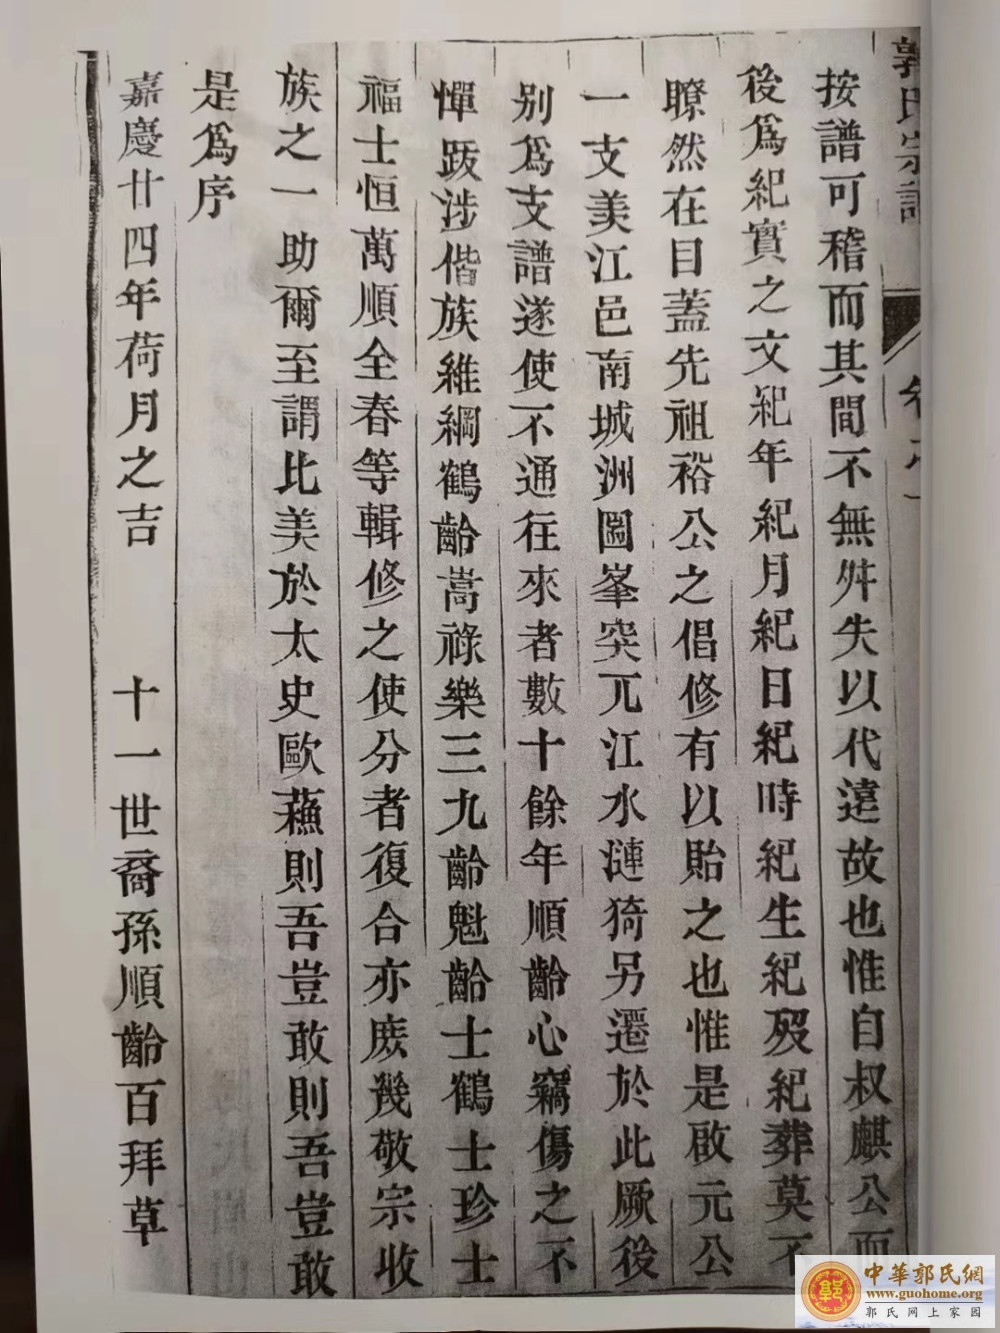 郭氏宗譜
卷之一
按譜可稽而其間不無舛失以代遠故也惟自叔麒公而
後爲紀實之文紀年紀月紀日紀時紀生紀歿紀葬莫不
瞭然在目蓋先祖裕公之倡修有以貽之也惟是啟元公
一支美江邑南城洲圖峯突兀江水漣猗另遷於此厥後
别爲支譜遂使不通往來者數十餘年順齡心竊傷之不
憚跋涉偕族維綱鶴齡嵩祿樂三九齡魁齡士鶴士珍士
福士恒萬順全春等輯修之使分者復合亦庻幾敬宗收
族之一助爾至謂比美於太史歐蘓則吾豈敢則吾豈敢
是爲序
嘉慶廿四年荷月之吉　十一世裔孫順齡百拜草
中華郭氏網
www.guohome.org
郭氏网上家园
郭